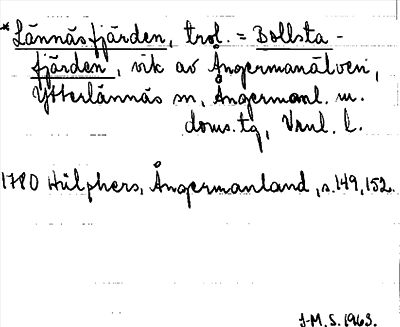 * Lännäsfjärden, trol. = Bollsta-
fjärden, vik av Ångermanälven,
Ytterlännäs sn, Ångermanl. m.
doms. tg, Vnul. l.
1780 Hülphers, Ångermanland, s. 149, 152.
J-M. S. 1963.